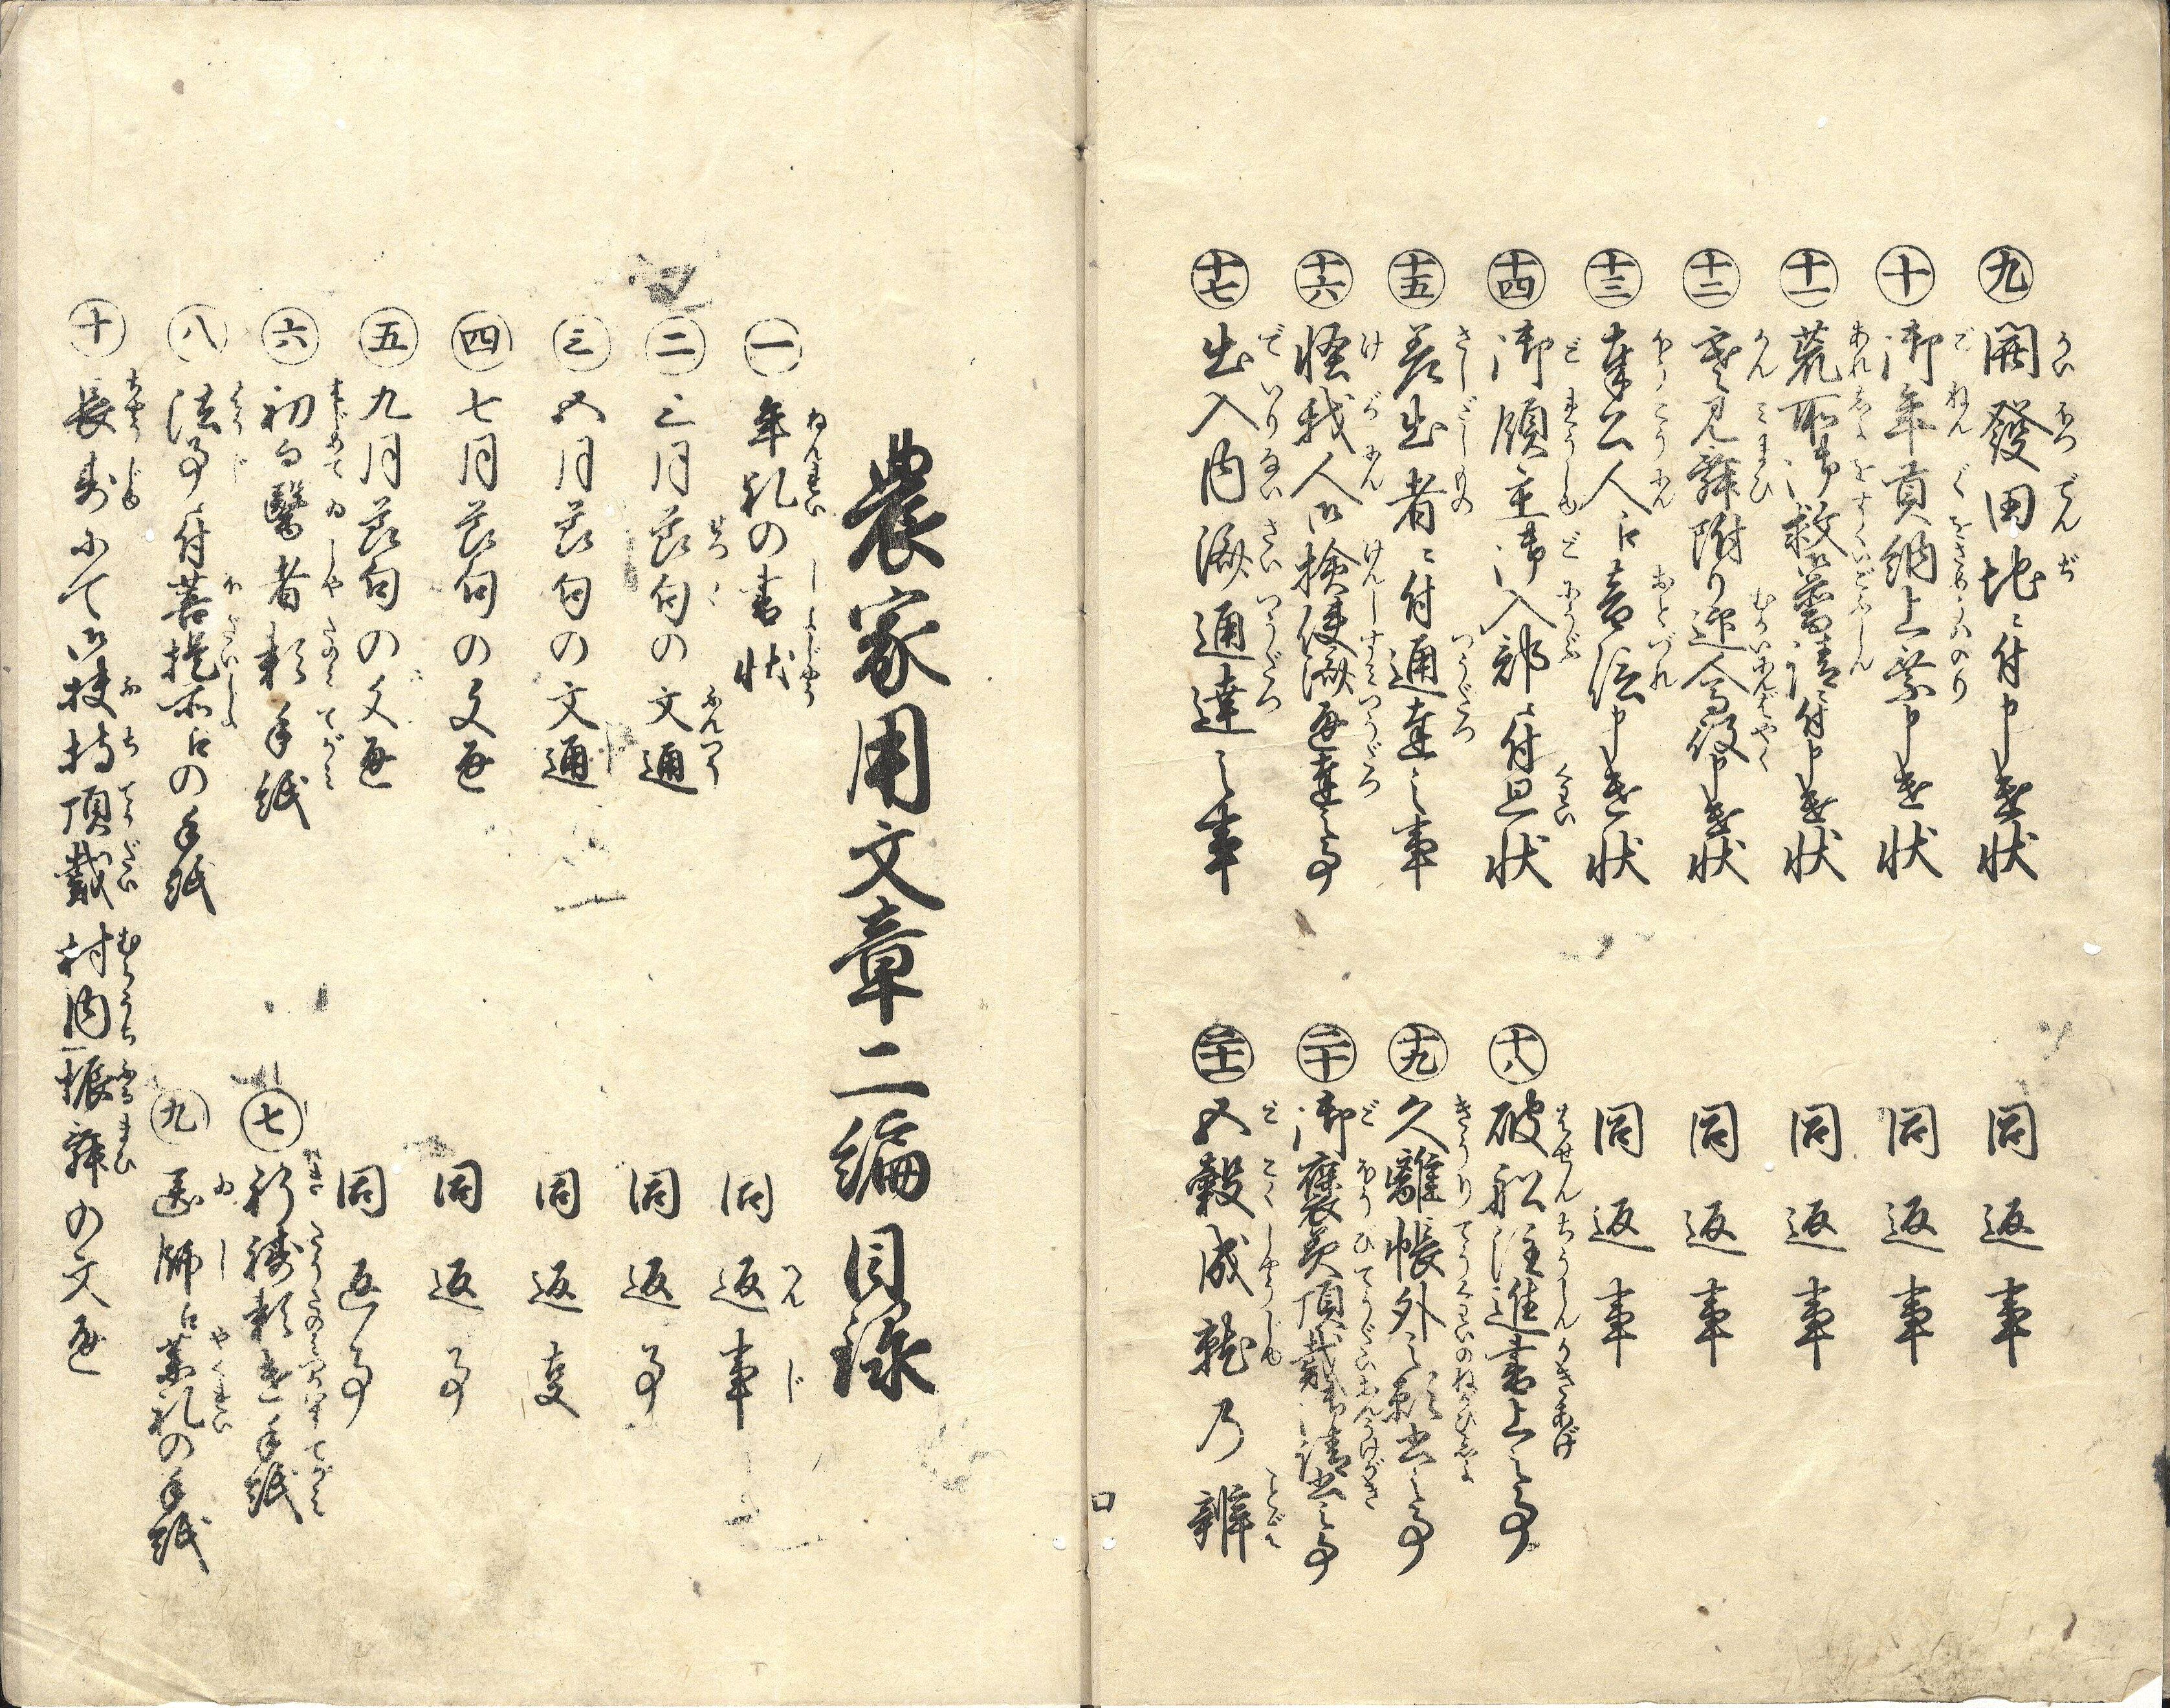 九 開發田地ニ付申遣状
同返事
十 御年貢納上察申遣状
同返事
十一 荒所御救御普請ニ付申遣状
同返事
十二 寒見舞附り迎人馬役申遣状
同返事
十三 奉公人江音信申遣状
同返事
十四 御領主御入部ニ付回状
十五 差出者ニ付通達之事
十六 怪我人御検使済通達之事
十七 出入内済通達之事
十八 破船注進書上之事
十九 久離帳外之願書之事
二十 御褒美頂戴御請書之事
二十一 五穀成就乃辨
農家用文章二編目録
一 年礼の書状
同返事
二 三月節句の文通
同返事
三 五月節句の文通
同返事
四 七月節句の文通
同返事
五 九月節句の文通
同返事
六 初而醫者頼手紙
七 祈祷頼遣手紙
八 法事ニ付菩提所江の手紙
九 医師江薬礼の手紙
十 長寿にて御扶持頂戴村内振舞の文通